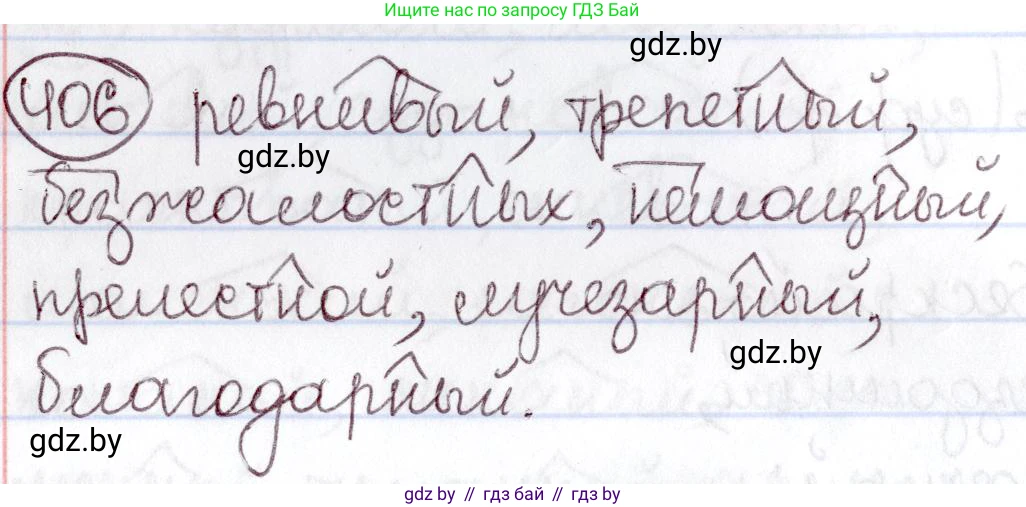 Ищите нас по запросу ГДЗ Бай
gdz.by
406 ревнивый, трепетный,
gdz.by
безжалостных, немощный,
прелестной, лучезарный,
gdz.by
благодарный.
gdz.by
gdz.by // гдз бай // гдз by